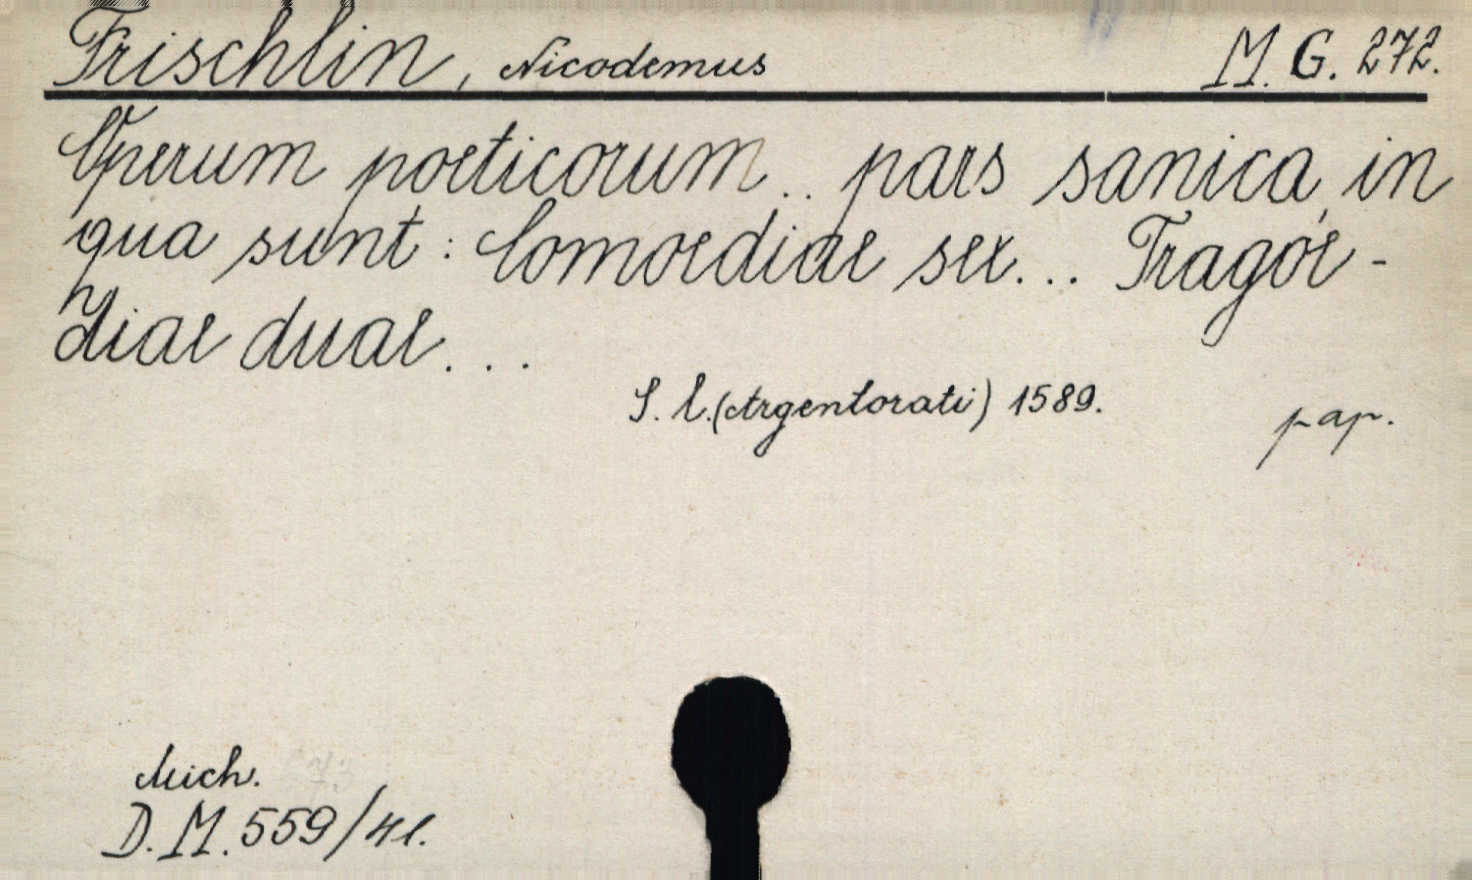 Frischlin, Nicodemus M. G. 272.
Operum poeticorum.. pars sanica, in
qua sunt: Comoediae sex... Tragoe-
diae duae...
S. l. (Argentorati) 1589. pap.
Mich.
D. M. 559/41.